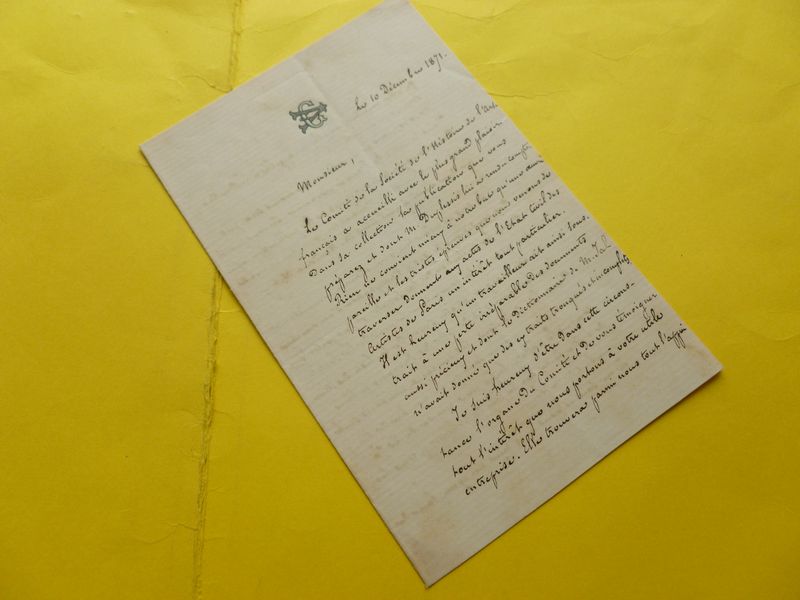 Le 10 Décembre 1871.
Monsieur,
Le Comité de la Société de l'Histoire de l'Art
français a accueilli avec le plus grand plaisir
dans sa collection la publication que vous
préparez et dont M. Duplessis lui a rendu compte.
Rien ne convient mieux à notre but qu'une œuvre
pareille et les tristes épreuves que nous venons de
traverser donnent aux actes de l'Etat Civil des
Artistes de Paris un intérêt tout particulier.
Il est heureux qu'un travailleur ait ainsi sous-
trait à une perte irréparable des documents
aussi précieux et dont le Dictionnaire de M. Jal
n'avait donné que des extraits tronqués et incomplets.
Je suis heureux d'être dans cette circons-
tance l'organe du Comité et de vous témoigner
tout l'intérêt que nous portons à votre utile
entreprise. Elle trouvera parmi nous tout l'appui